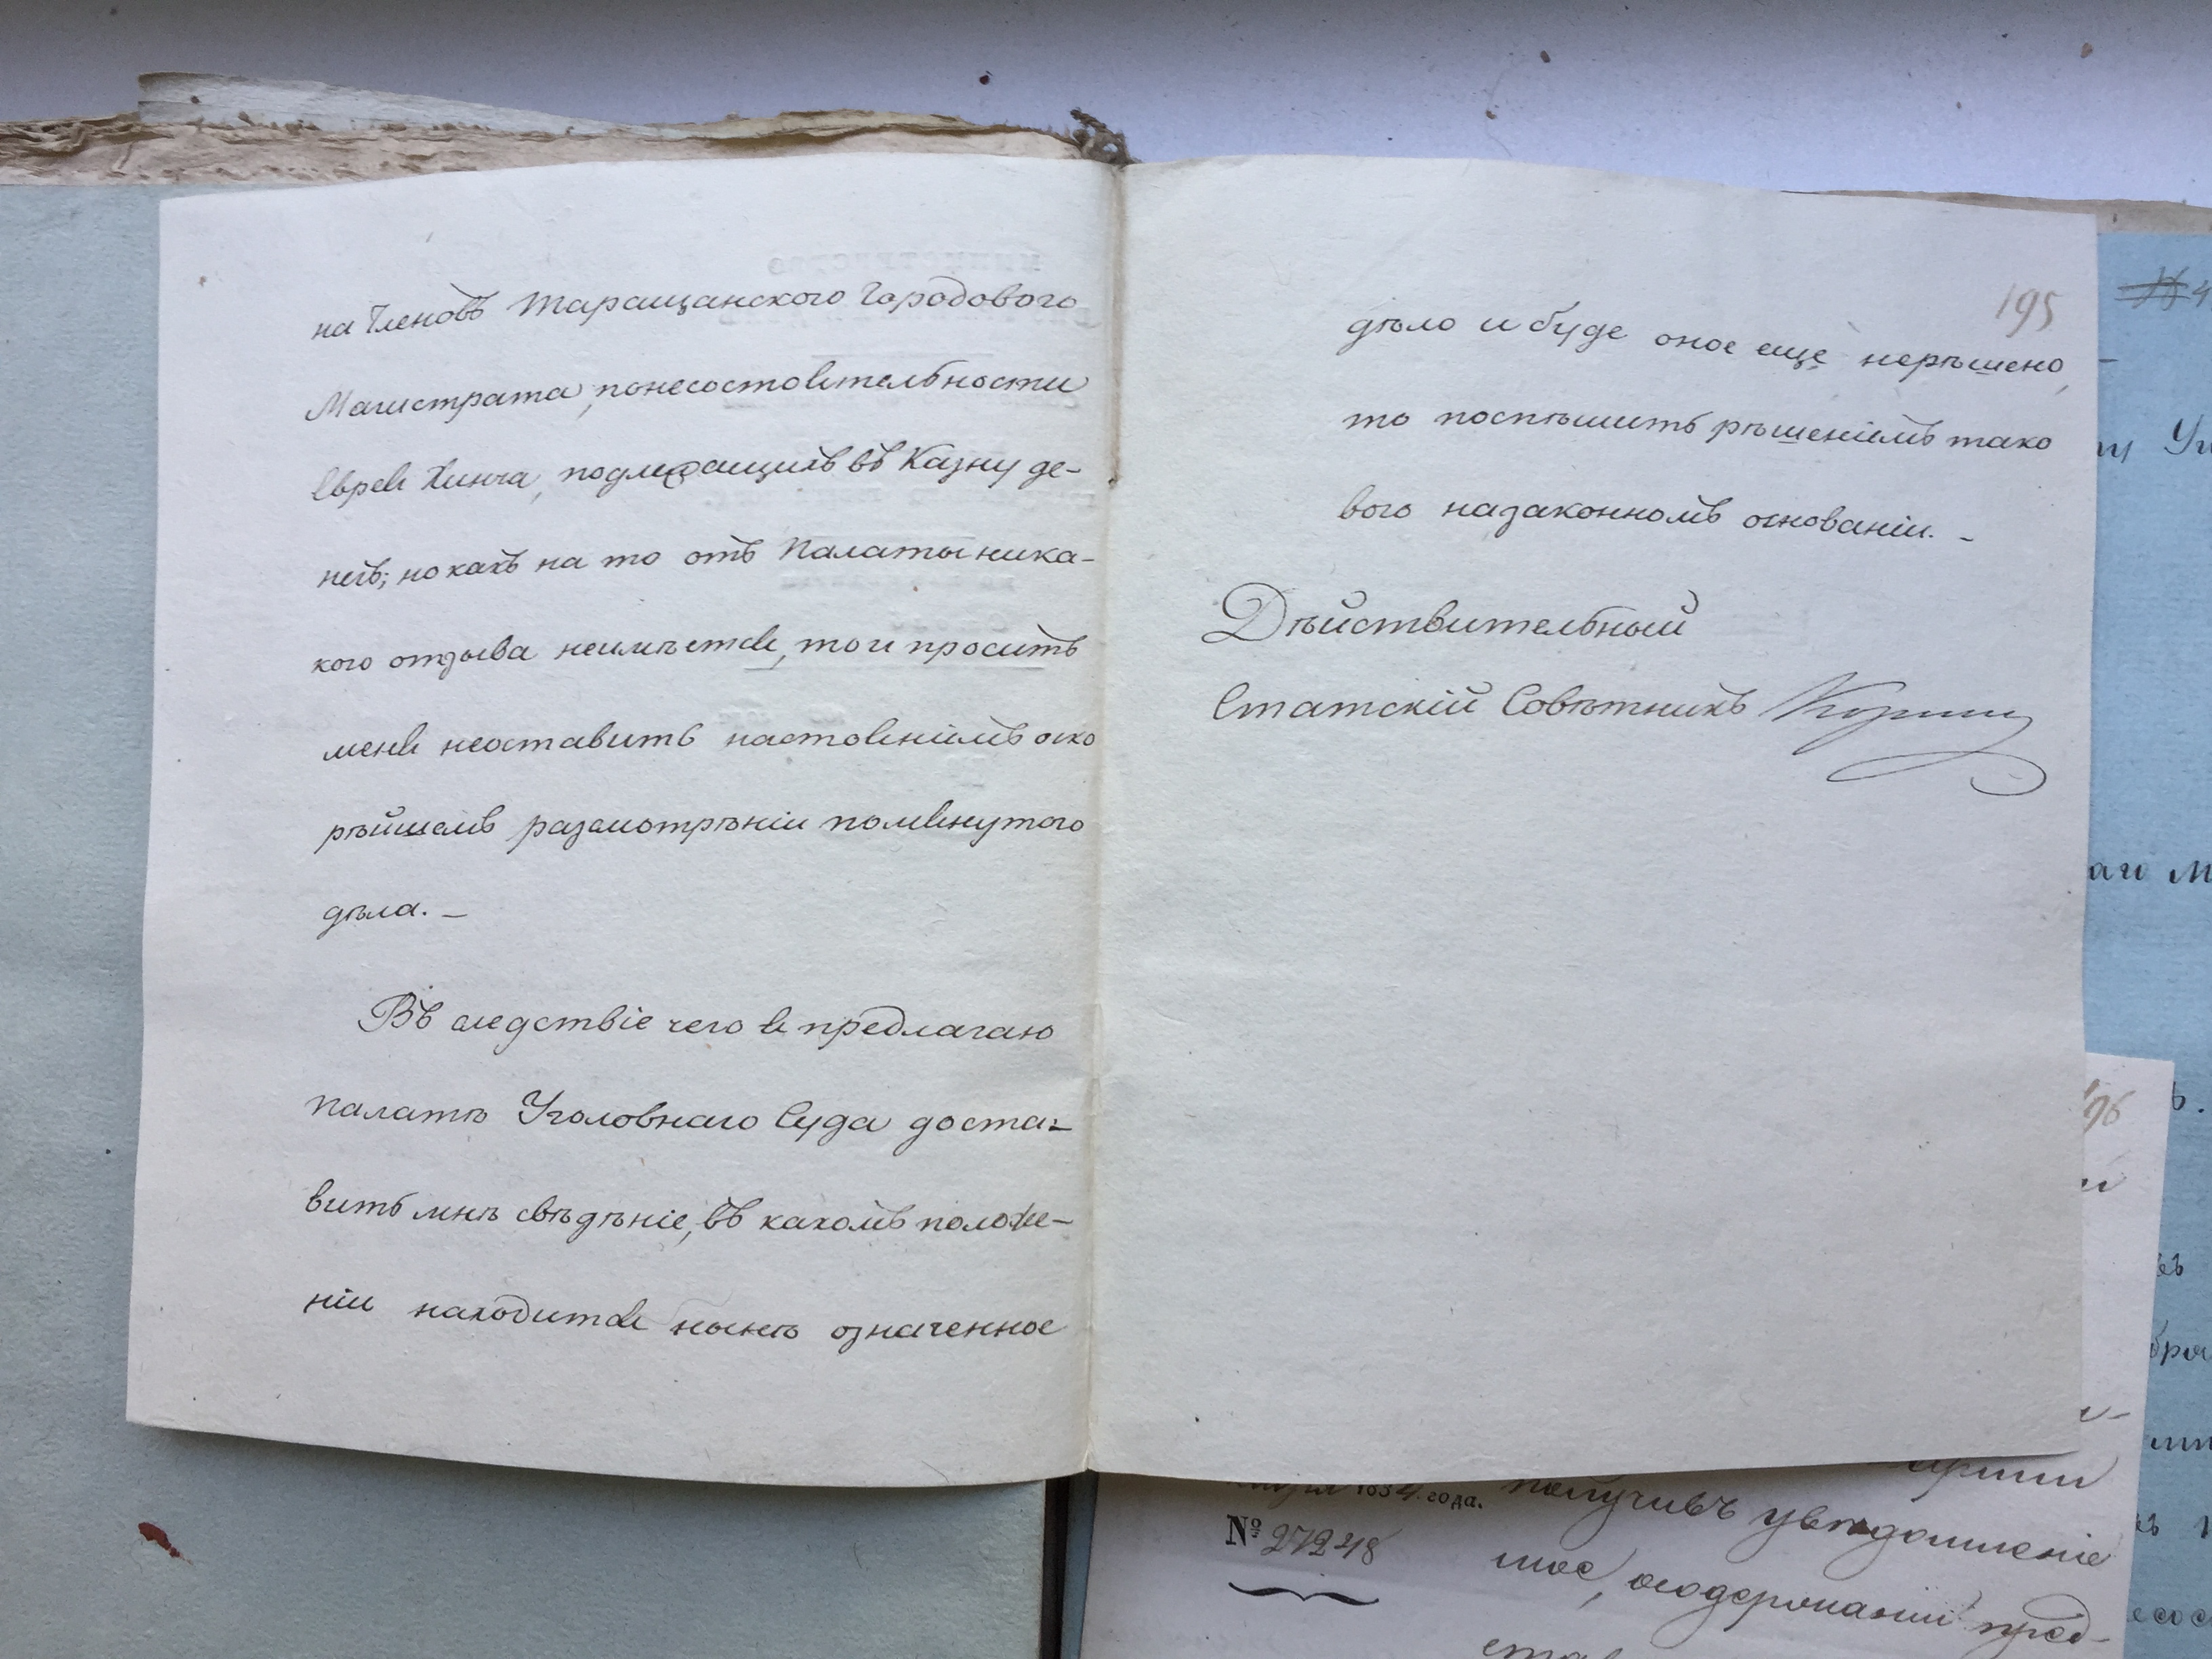 на Членовъ Таращанского Городового
Магистрата, понесостоятельности
Еврея Хинча, подлежащихъ въ Казну де-
негъ; но какъ на то отъ Палаты ника-
кого отзыва неимѣется, то и проситъ
меня неоставить настояніемъ оско
рѣйшемъ разсмотрѣніи помянутого
дѣла. –
Въ следствіе чего я предлагаю
Палатѣ Уголовнаго Суда доста-
вить мнѣ свѣдѣніе, въ какомъ положе-
ніи находится нынѣ означенное
195
дѣло и буде оное еще нерѣшено,
то поспѣшить рѣшеніемъ тако
вого назаконномъ основаніи. –
Дѣйствительный
Статскій Совѣтникъ
196
1834 года.
№ 27248
получивъ увѣдомленіе
мое, осодержаніи пред-